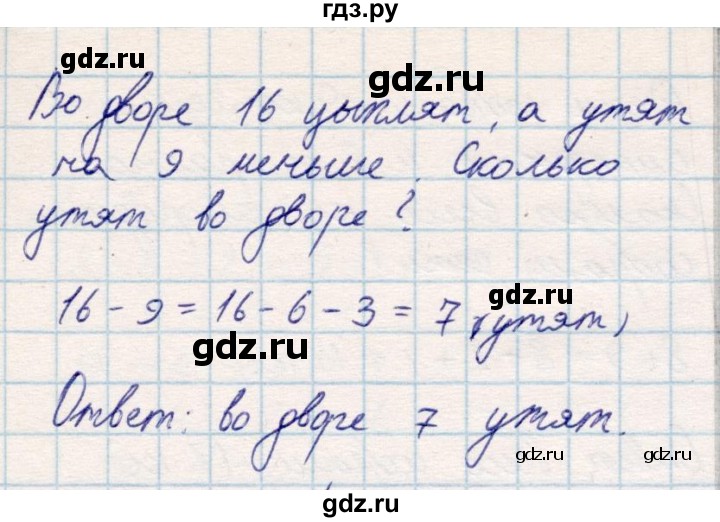 гдз.ру
gdz.ru
gdz.ru
Во дворе 16 цыплят, а утят
на 9 меньше. Сколько
утят во дворе?
16 - 9 = 16 - 6 - 3 = 7 (утят)
gdz.ru
Ответ: во дворе 7 утят.
gdz.ru
gdz.ru
gdz.ru